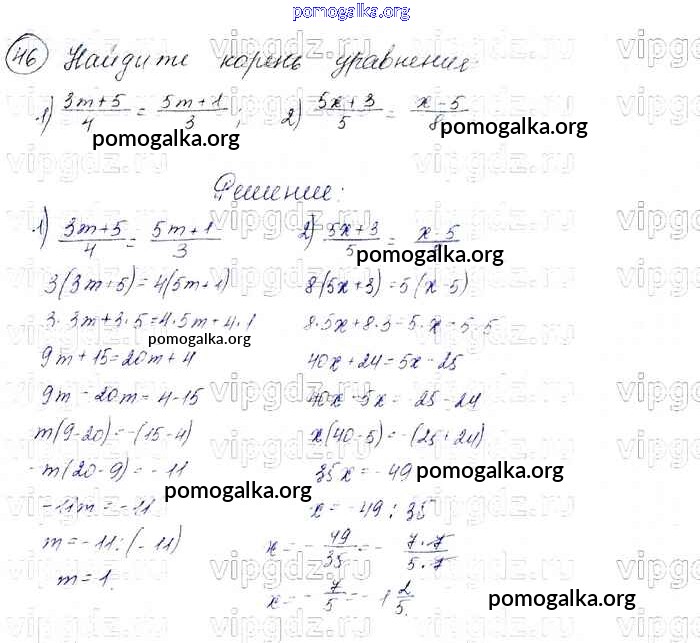 pomogalka.org
46 Найдите корень уравнения:
1) (3m+5)/4 = (5m+1)/3; 2) (5x+3)/5 = (x-5)/8
pomogalka.org
pomogalka.org
Решение:
1) (3m+5)/4 = (5m+1)/3 2) (5x+3)/5 = (x-5)/
pomogalka.org
3(3m+5)=4(5m+1) 8(5x+3)=5(x-5)
3·3m+3·5=4·5m+4·1 8·5x+8·3=5·x-5·5
pomogalka.org
9m+15=20m+4 40x+24=5x-25
9m-20m=4-15 40x-5x=-25-24
m(9-20)=-(15-4) x(40-5)=-(25+24)
-m(20-9)=-11 35x=-49
pomogalka.org
pomogalka.org
-11m=-11 x=-49:35
m=-11:(-11) x=-49/35=-(7·7)/(5·7)
m=1. x=-7/5=-1 2/5.
pomogalka.org
vipgdz.ru